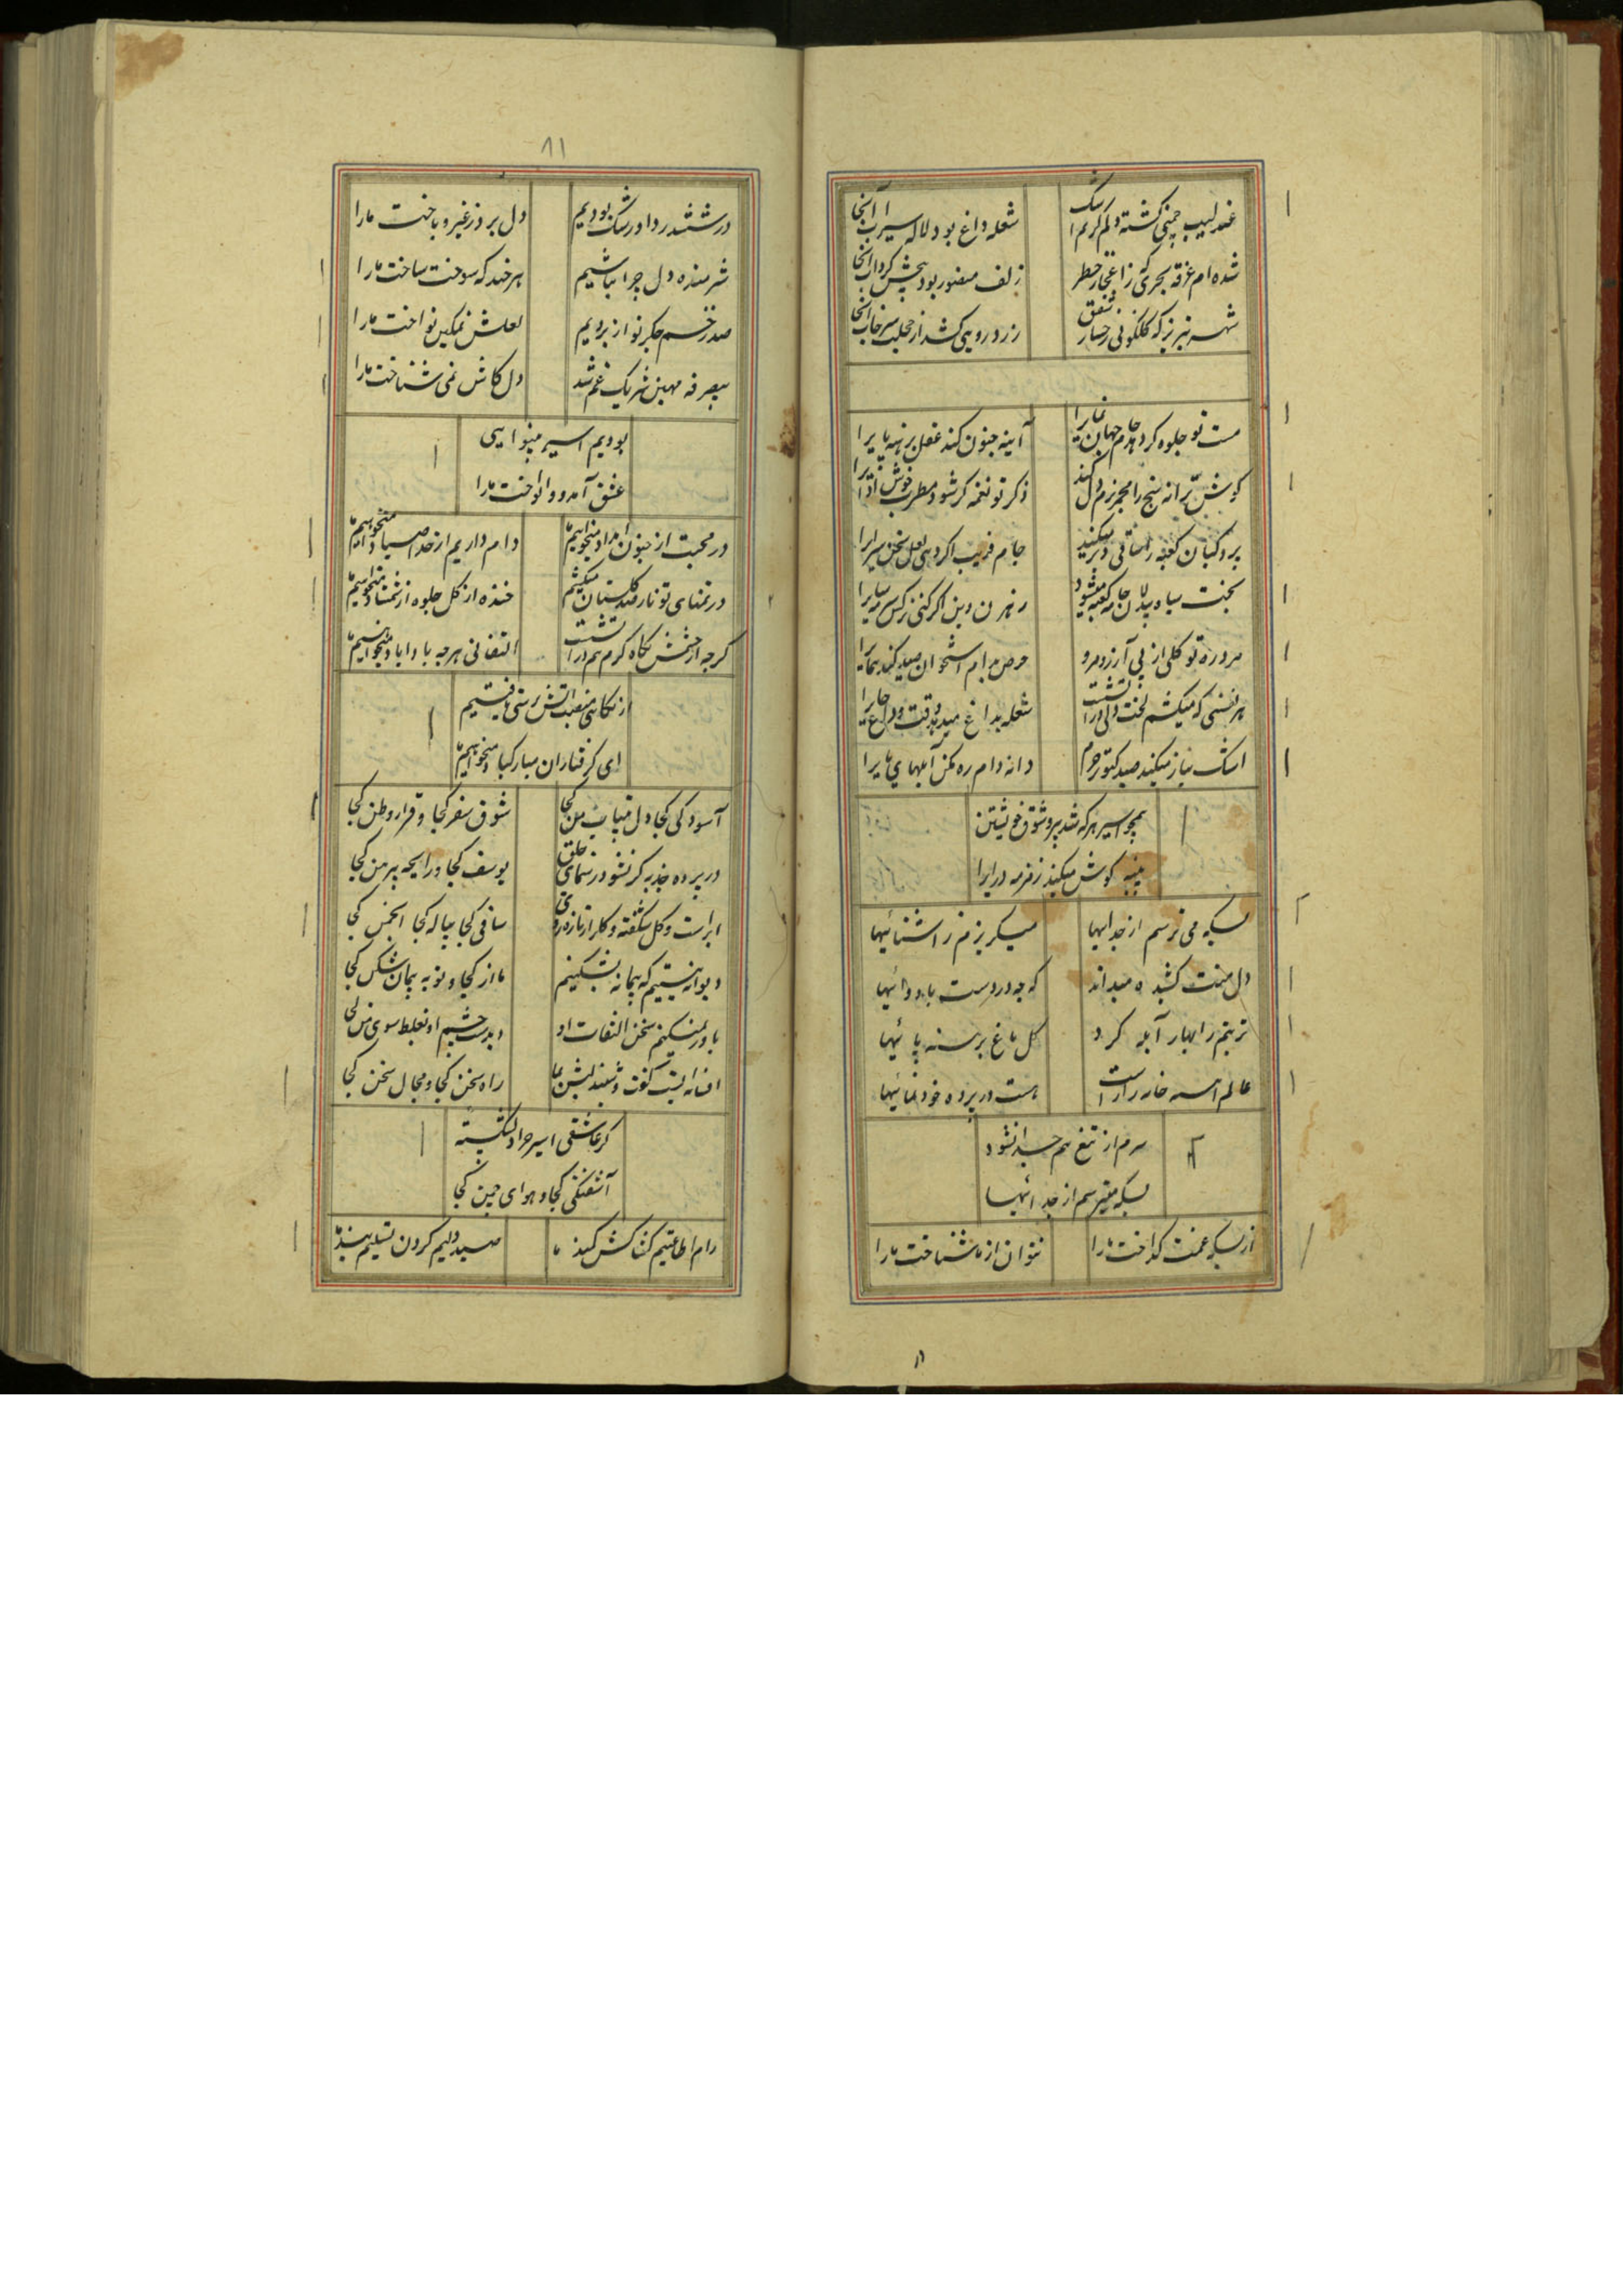 عندلیب چمنی گشته دلم کز رشک
شعله داغ بود لاله سیراب آنجا
شده ام غرقه بحری که ز اعجاز خطر
زلف مغفور بود پیچش گرداب آنجا
شهر تبریز که گلگونی رخسار شفق
زرد رویی کشد از مجلس سرخاب آنجا
مست تو جلوه گر دهد جام جهان نما را
آینه جنون کند عقل برهنه پا را
گوش ترانه سنج را مجمر بزم دل کند
ذکر تو نغمه گر شود مطرب خوش ادا را
جام فریب اگر دهی لعل سخن سرا را
بخت سیاه بیدلان جامه کعبه میشود
رهزن دین اگر کنی نرگس سرمه سا را
مرو ره تو کلی از پی آرزو مرو
حرص بدام استخوان صید کند هما را
هر نفسی که میکشم لخت دلی در آتشست
شعله بداغ میدهد وقت وداع جا را
اشک نیاز میکند صید کبوتر حرم
دانه دام ره مکن آبلهای پا را
همچو اسیر هر که شد پیرو شوق خویشتن
پنبه گوش میکند زمزمه درا را
بسکه می ترسم از جداییها
میگریزم ز آشنائیها
دل منت کشیده میداند
که چه دردست با دوائیها
تربتم را بهار آبله کرد
گل باغ برهنه پائیها
عالم آینه خانه رازست
هست در پرده خودنمائیها
سرم از تیغ هم جدا نشود
بسکه میترسم از جدائیها
از بسکه غمت گداخت ما را
نتوان از ما شناخت ما را
۸۱
در ششدر داو رشک بودیم
دل برد ز غیر و باخت ما را
شرمنده دل چرا نباشیم
هر چند که سوخت ساخت ما را
صد زخم جگر نواز بردیم
لعلش نمکین نواخت ما را
بیصرفه مهین شریک غم شد
دل کاش نمی شناخت ما را
بودیم اسیر بینوایی
عشق آمد و وانواخت ما را
در محبت از جنون امداد میخواهیم ما
دام داریم از خدا صیاد میخواهیم ما
در تمنای تو ناز صد گلستان میکشیم
خنده از گل جلوه از شمشاد میخواهیم ما
گرچه از چشمش نگاه گرم هم در آتشست
التفاتی هر چه بادا باد میخواهیم ما
از نگاهی منصب آتش پرستی یافتیم
ای گرفتاران مبارکباد میخواهیم ما
آسودگی کجا دل بیتاب من کجا
شوق سفر کجا و قرار وطن کجا
در پرده جذبه گر نشود رهنمای خلق
یوسف کجا و رایحه پیرهن کجا
ابر است و گل شگفته و گلزار تازه روی
ساقی کجا پیاله کجا انجمن کجا
دیوانه نیستیم که پیمانه بشکنیم
ما از کجا و توبه پیمان شکن کجا
باور نمیکنم سخن التفات او
دیدست چشم او بغلط سوی من کجا
افسانه ایست گفت و شنیدن به پیش ما
راه سخن کجا و مجال سخن کجا
گر عاشقی اسیر چرا دلشکسته
آشفتگی کجا و هوای چمن کجا
رام اطاعتیم کشاکش کمند ما
صید دلیم گردن تسلیم بند ما